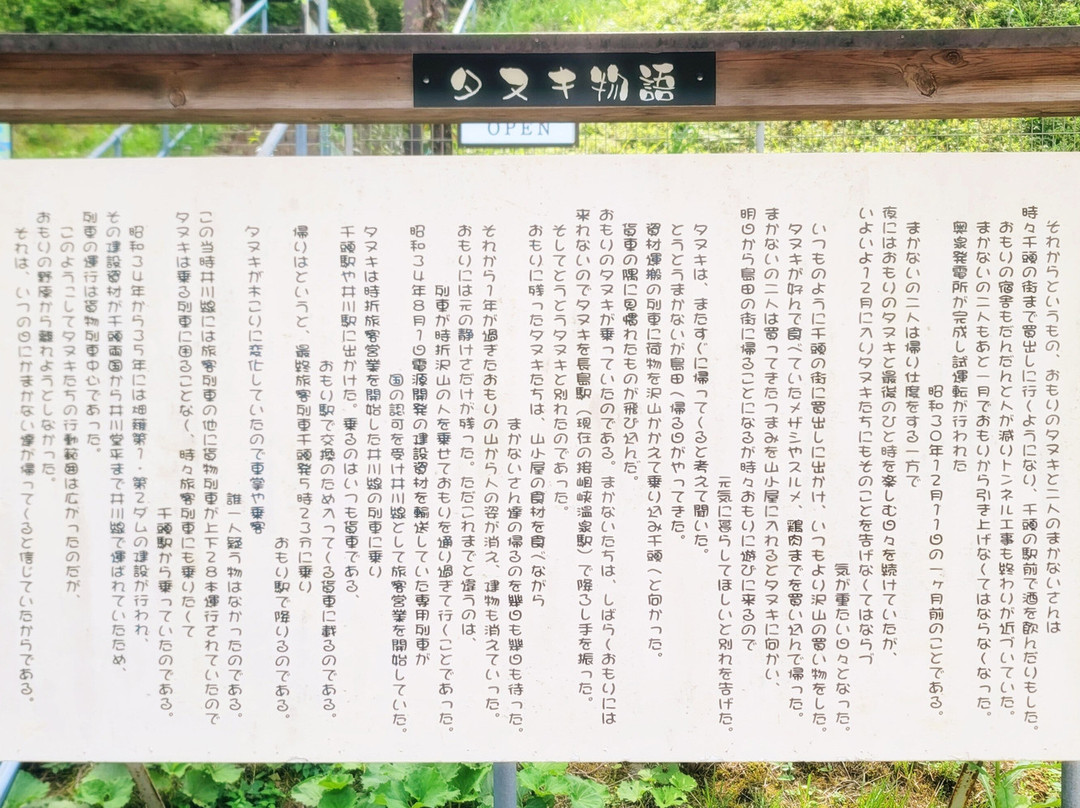 タヌキ物語
OPEN
それからというもの、おもりのタヌキと二人のまかないさんは
時々千頭の街まで買出しに行くようになり、千頭の駅前で酒を飲んだりもした。
おもりの宿舎もだんだんと人が減りトンネル工事も終わりが近づいていた。
まかないの二人もあと一月でおもりから引き上げなくてはならなくなった。
奥泉発電所が完成し試運転が行われた
昭和30年12月11日の一ヶ月前のことである。
まかないの二人は帰り仕度をする一方で
夜にはおもりのタヌキと最後のひと時を楽しむ日々を続けていたが、
いよいよ12月に入りタヌキたちにもそのことを告げなくてはならづ
気が重たい日々となった。
いつものように千頭の街に買出しに出かけ、いつもより沢山の買い物をした。
タヌキが好んで食べていたメザシやスルメ、鶏肉までを買い込んで帰った。
まかないの二人は買ってきたつまみを山小屋に入れるとタヌキに向かい、
明日から島田の街に帰ることになるが時々おもりに遊びに来るので
元気に暮らしてほしいと別れを告げた。
タヌキは、またすぐに帰ってくると考えて聞いた。
とうとうまかないが島田へ帰る日がやってきた。
資材運搬の列車に荷物を沢山かかえて乗り込み千頭へと向かった。
貨車の隅に見慣れたものが飛び込んだ。
おもりのタヌキが乗っていたのである。まかないたちは、しばらくおもりには
来れないのでタヌキを長島駅(現在の接岨峡温泉駅)で降ろし手を振った。
そしてとうとうタヌキと別れたのであった。
おもりに残ったタヌキたちは、山小屋の食材を食べながら
まかないさん達の帰るのを幾日も幾日も待った。
それから1年が過ぎたおもりの山から人の姿が消え、建物も消えていった。
おもりには元の静けさだけが残った。ただこれまでと違うのは、
列車が時折沢山の人を乗せておもりを通り過ぎて行くことであった。
昭和34年8月1日電源開発の建設資材を輸送していた専用列車が
国の認可を受け井川線として旅客営業を開始していた。
タヌキは時折旅客営業を開始した井川線の列車に乗り
千頭駅や井川駅に出かけた。乗るのはいつも貨車である、
おもり駅で交換のため入ってくる貨車に載るのである。
帰りはというと、最終旅客列車千頭発5時23分に乗り
おもり駅で降りるのである。
タヌキが木こりに変化していたので車掌や乗客
誰一人疑う物はなかったのである。
この当時井川線には旅客列車の他に貨物列車が上下28本運行されていたので
タヌキは乗る列車に困ることなく、時々旅客列車にも乗りたくて
千頭駅から乗っていたのである。
昭和34年から35年には畑薙第1・第2ダムの建設が行われ、
その建設資材が千頭両国から井川堂平まで井川線で運ばれていたため、
列車の運行は貨物列車中心であった。
このようこしてタヌキたちの行動範囲は広かったのだが、
おもりの野原から離れようとしなかった。
それは、いつの日にかまかない達が帰ってくると信じていたからである。